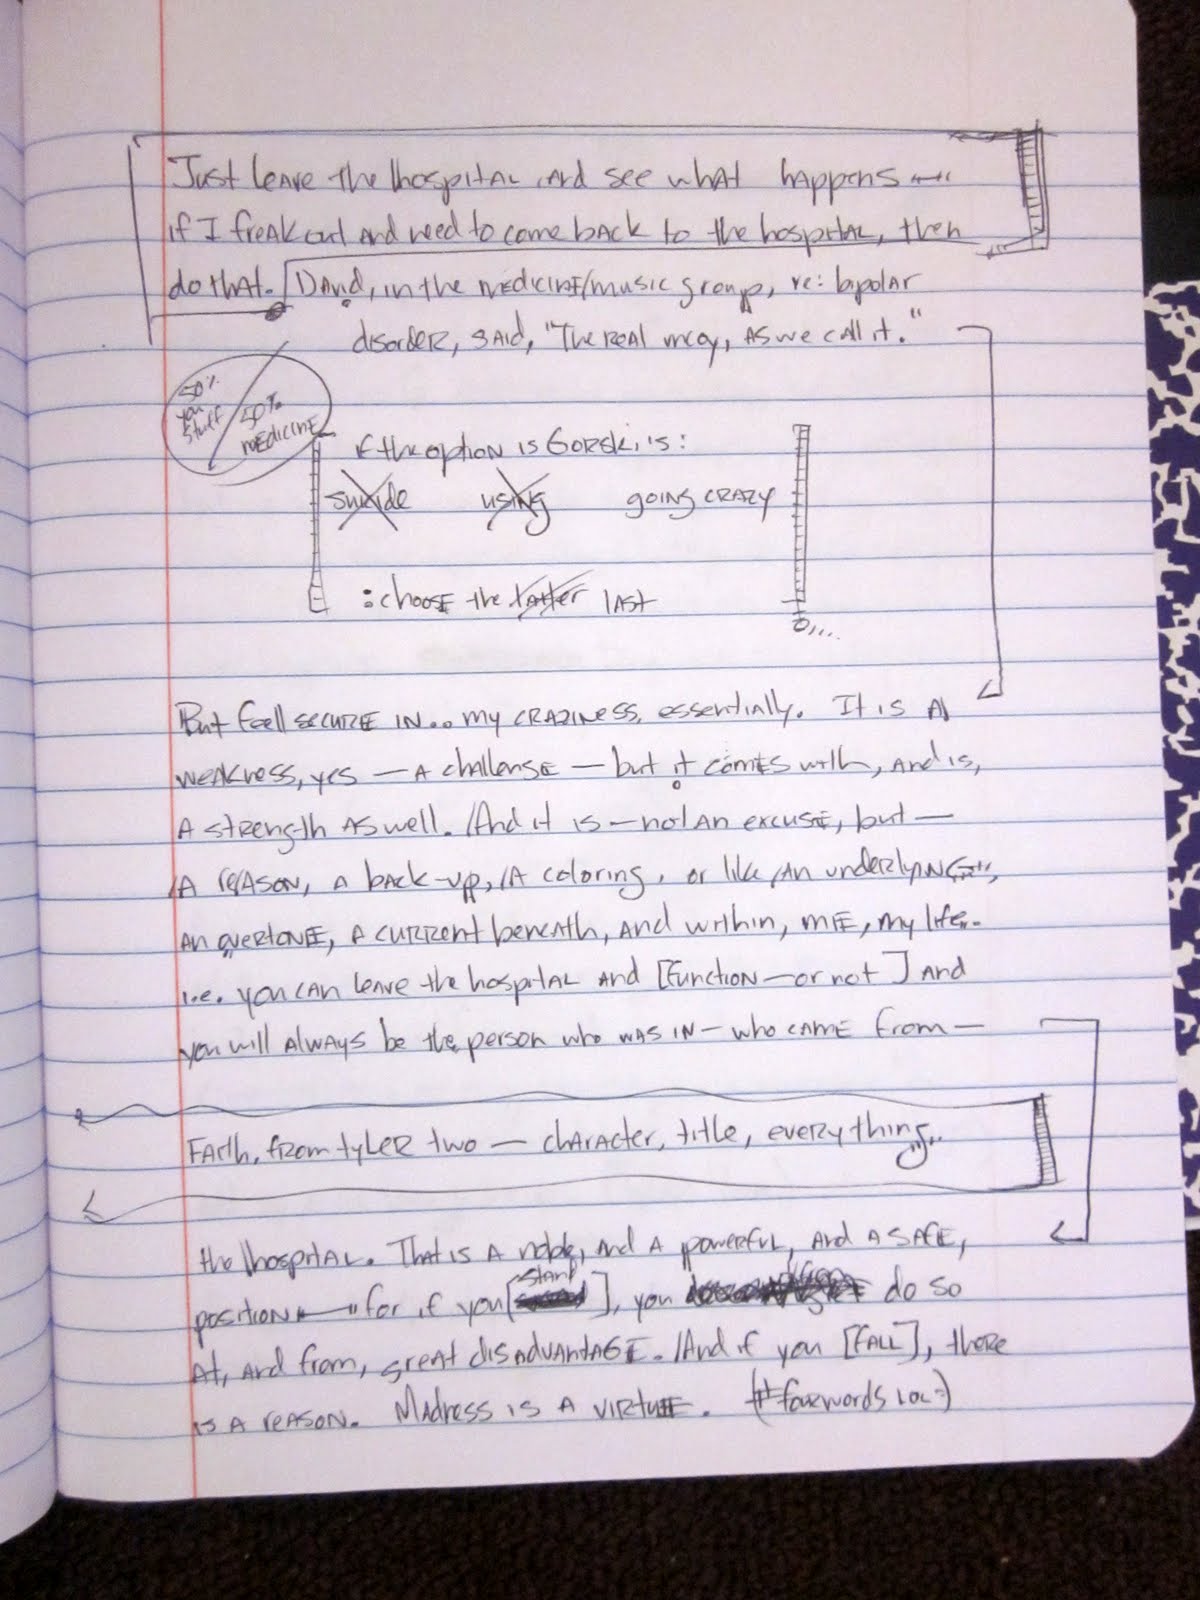 Just leave the hospital and see what happens —
if I freak out and need to come back to the hospital, then
do that. David, in the medicine/music group, re: bipolar
disorder, said, "The real mcoy, as we call it."
50% you stuff
50% medicine
if the option is Gorski, is:
suicide using going crazy
: choose the latter last
But feel secure in... my craziness, essentially. It is a
weakness, yes — a challenge — but it comes with, and is,
a strength as well. And it is — not an excuse, but —
a reason, a back-up, a coloring, or like an underlying,
an overtone, a current beneath, and within, me, my life.
i.e. you can leave the hospital and [function — or not] and
you will always be the person who was in — who came from —
Faith, from tyler two — character, title, everything...
the hospital. That is a noble, and a powerful, and a safe,
position — for if you [stand], you do so
at, and from, great disadvantage. And if you [fall], there
is a reason. Madness is a virtue. (#fourwords